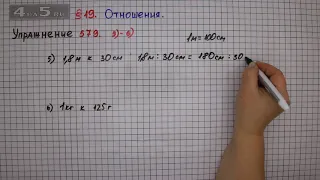 4 5
§19. Отношения.
Упражнение 579. 5)-6)
1м=100см
5) 1,8м к 30см 1,8м : 30см = 180см : 30
6) 1кг к 125г